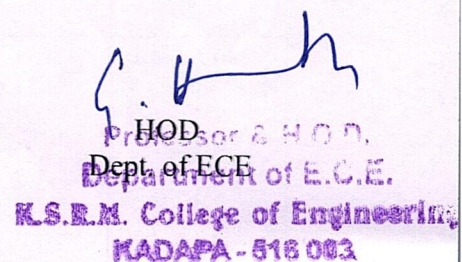 HOD
Professor & H.O.D.
Dept. of ECE
Department of E.C.E.
K.S.R.M. College of Engineering
KADAPA - 516 003.